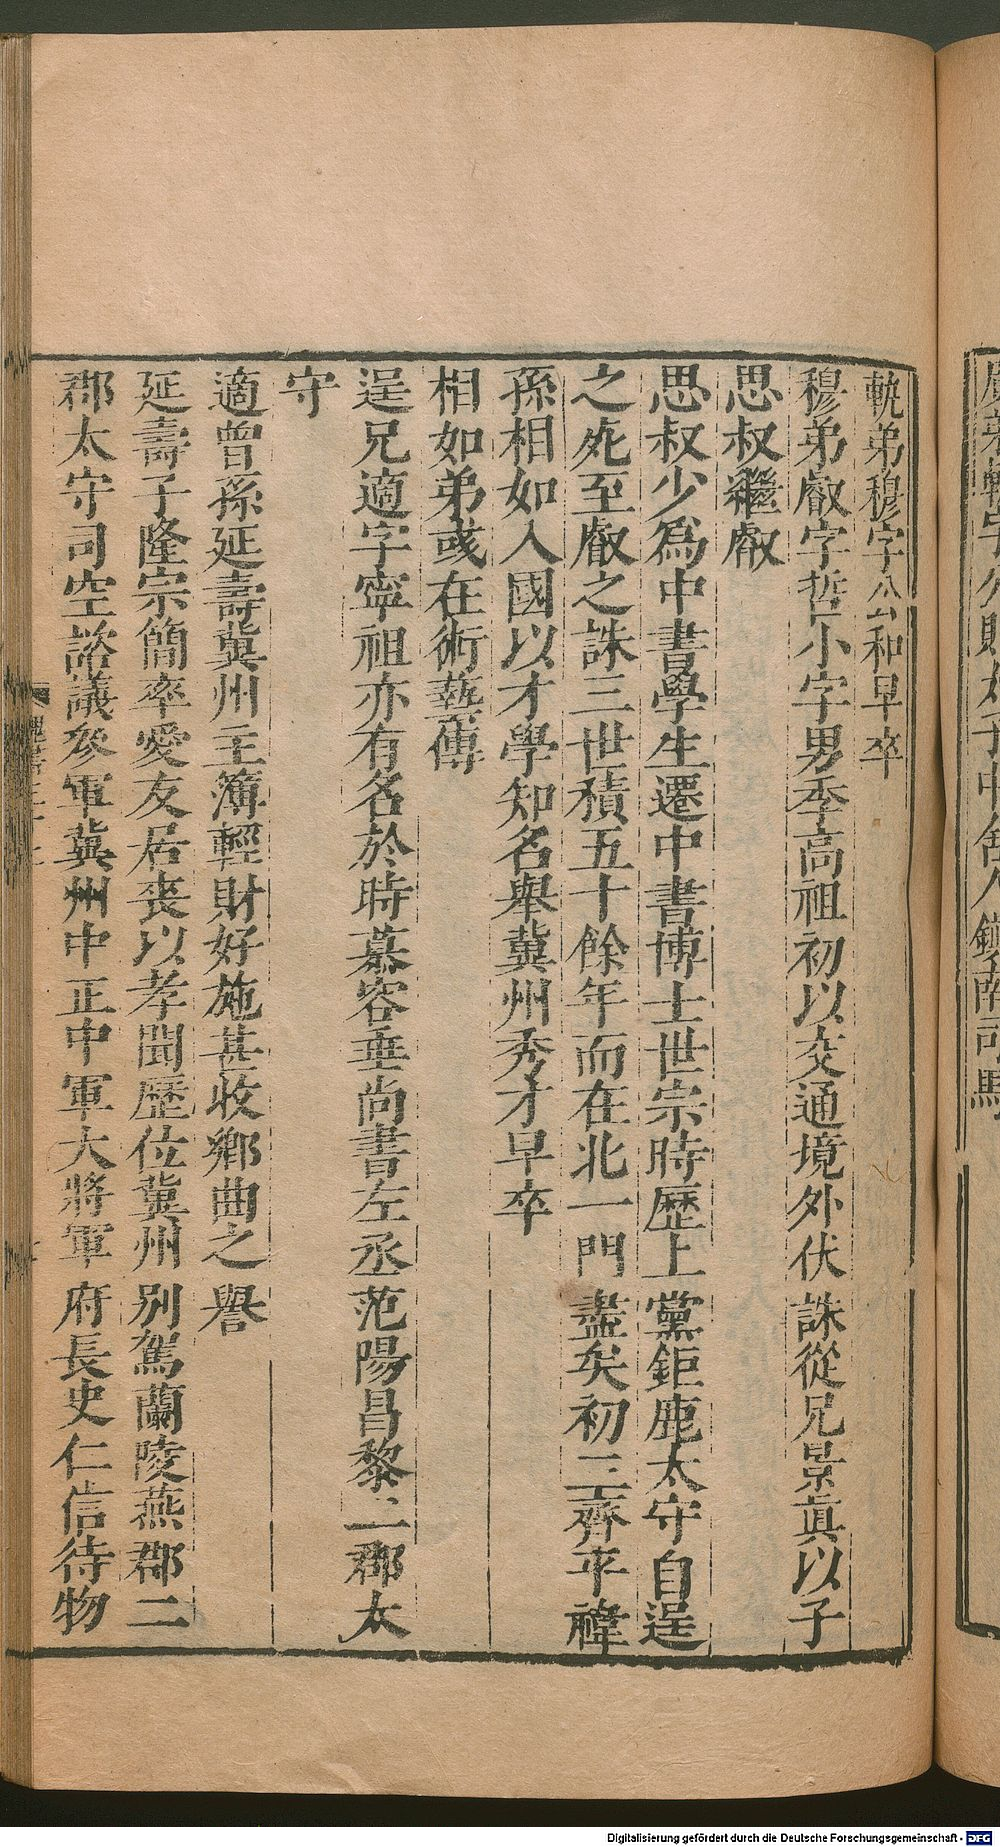 軌弟穆字公和早卒
穆弟叡字哲小字男季高祖初以交通境外伏誅從兄景真以子
思叔繼叡
思叔少爲中書學生遷中書博士世宗時歷上黨鉅鹿太守自逞
之死至叡之誅三世積五十餘年而在北一門盡矣初三齊平禕
孫相如入國以才學知名舉冀州秀才早卒
相如弟彧在術藝傳
逞兄適字寧祖亦有名於時慕容垂尚書左丞范陽昌黎二郡太
守
適曾孫延壽冀州主簿輕財好施甚收鄉曲之譽
延壽子隆宗簡率愛友居喪以孝聞歷位冀州別駕蘭陵燕郡二
郡太守司空諮議參軍冀州中正中軍大將軍府長史仁信待物
Digitalisierung gefördert durch die Deutsche Forschungsgemeinschaft - DFG